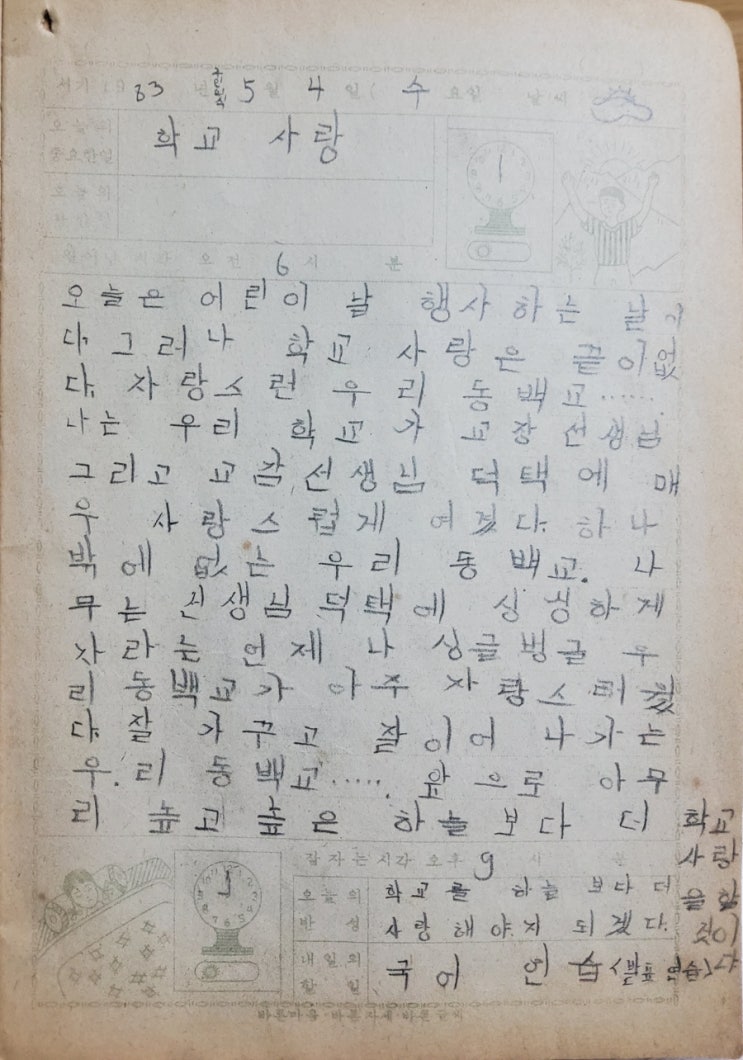 서기 19 83 년 5 월 4 일 ( 수 요일 날씨
오늘의 중요한일 학교 사랑
오늘의 착한일
일어난 시각 오전 6 시 분
오늘은 어린이 날 행사 하는 날이
다. 그러나 학교 사랑은 끝이없
다. 자랑스런 우리 동백교......
나는 우리 학교가 교장선생님
그리고 교감선생님 덕택에 매
우 자랑스럽게 여겼다. 하나
밖에 없는 우리 동백교. 나
무는 선생님 덕택에 싱싱하게
자라는 언제나 싱글벙글 우
리 동백교가 아주 자랑스러웠
다. 잘 가꾸고 잘이어 나가는
우.리 동백교...... 앞으로 아무
리 높고 높은 하늘보다 더 학교
사랑
을 할
것이
다
잠자는시각 오후 9 시 분
오늘의 반성 학교를 하늘보다 더
사랑해야지 되겠다.
내일의 할일 국어 연습<발표 연습>
바른마음·바른자세·바른글씨